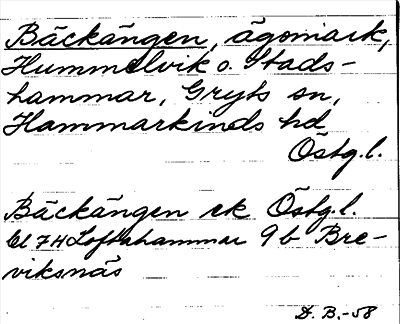 Bäckängen, ägomark,
Hummelvik o. Stads-
hammar, Gryts sn,
Hammarkinds hd
Östg.l.
Bäckängen ek Östg.l.
Bl 7H Loftahammar 9b Bre-
viksnäs
D. B.-58